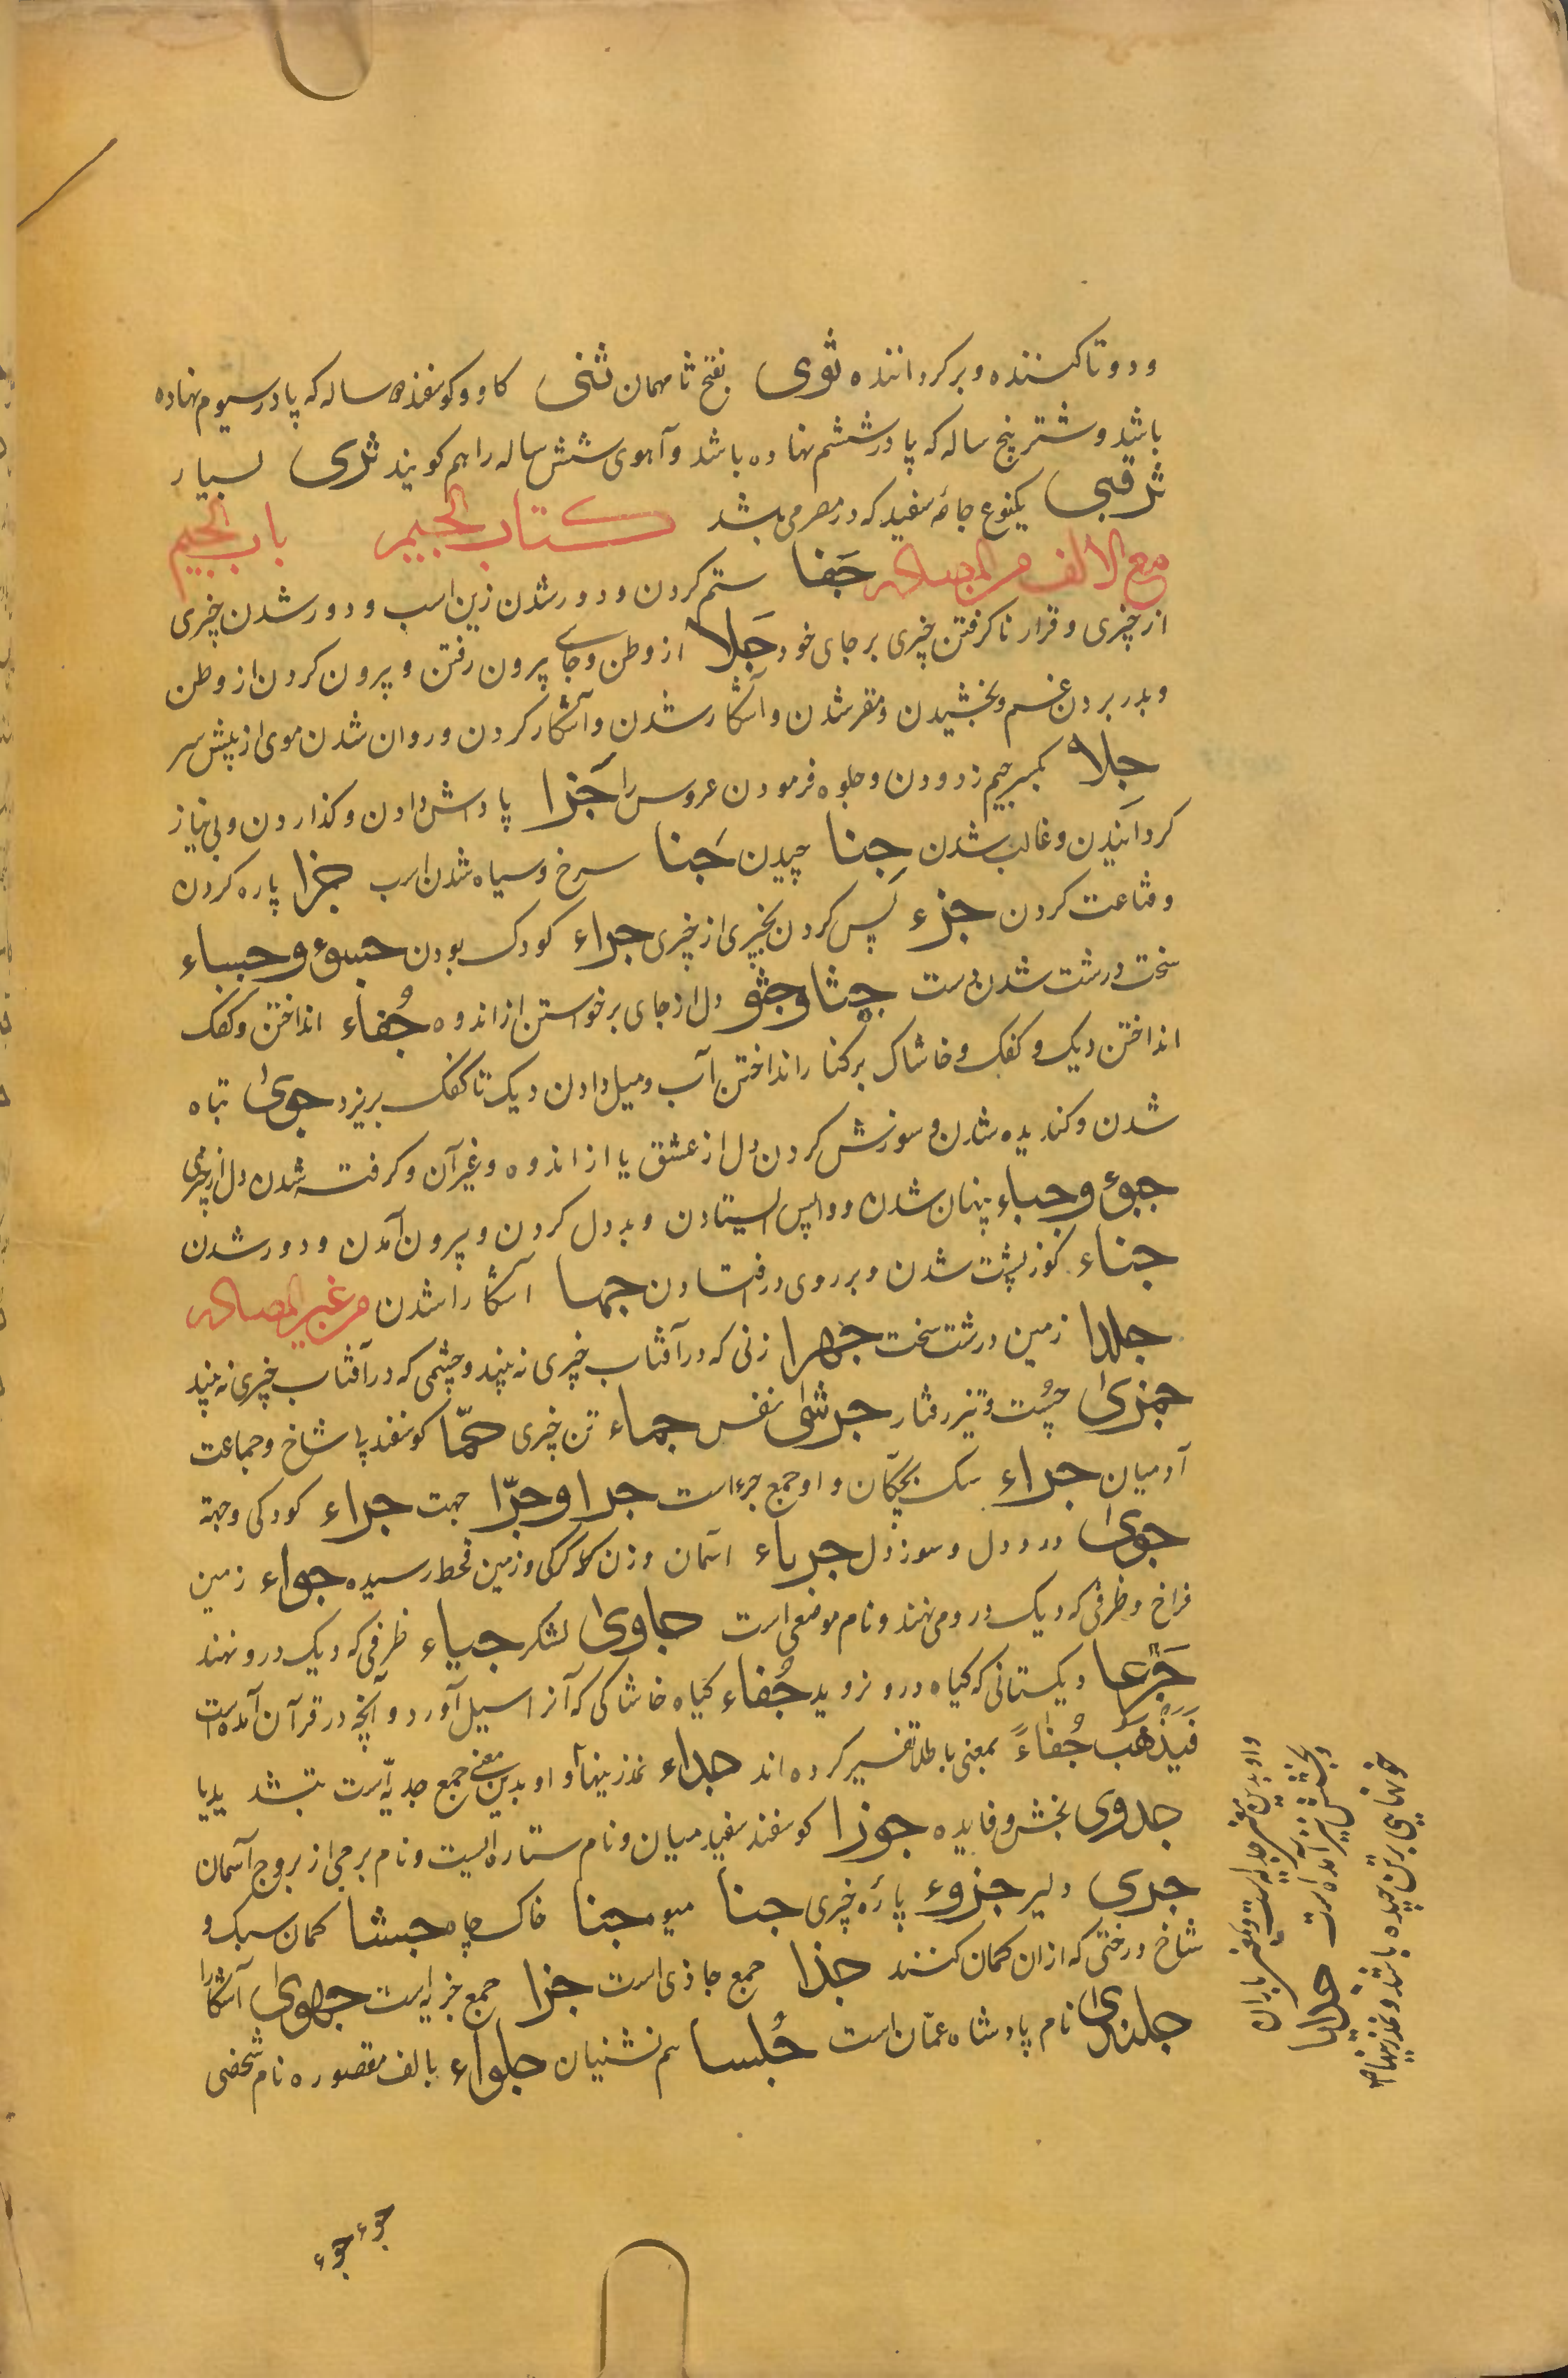 ودوتا کننده وبر کرداننده ثوی بفتح ثا مهمان ثنی کاو وکوسفند سه ساله که پا در سیوم نهاده
باشد وشتر پنج ساله که پا در ششم نهاده باشد وآهوی شش ساله را هم کویند ثری بسیار
ثرقبی یکنوع جامه سفید که در مصر می باشد کتاب الجیم باب الجیم
مع الالف من المصادر جَفا ستم کردن ودور شدن زین اسب ودور شدن چیزی
از چیزی وقرار ناکرفتن چیزی بر جای خود جَلا از وطن وجای بیرون رفتن وبیرون کردن از وطن
وبدر بردن غم وبخشیدن ومقر شدن وآشکار شدن وآشکار کردن وروان شدن موی از پیش سر
جِلا بکسر جیم زدودن وجلوه فرمودن عروس را جَزا پاداش دادن وکذاردن وبی نیاز
کردانیدن وغالب شدن جِنا چیدن جَنا سرخ وسیاه شدن اسب جزا پاره کردن
وقناعت کردن جزء بس کردن بچیزی از چیزی جراء کودک بودن جسوء وجساء
سخت ودرشت شدن دست جشا وجشو دل از جای برخواستن از اندوه جُفاء انداختن وکفک
انداختن دیک وکفک وخاشاک برکنار انداختن آب ومیل دادن دیک تا کفک بریزد جوی تباه
شدن وکندیده شدن وسوزش کردن دل از عشق یا از اندوه وغیر آن وکرفته شدن دل از چیزی
جبوء وجباء پنهان شدن وواپس ایستادن وبددل کردن وبیرون آمدن ودور شدن
جناء کوز پشت شدن وبر روی در افتادن جها آشکارا شدن من غیر المصادر
جلدا زمین درشت سخت جهرا زنی که در آفتاب چیزی نه بیند وچشمی که در آفتاب چیزی نه بیند
جمزی چُست وتیز رفتار جرشی نفس جماء تن چیزی جمّا کوسفند بی شاخ وجماعت
آدمیان جراء سک بچکان واو جمع جرء است جرا وجرّا جهت جراء کودکی وجهة
جوی درد دل وسوز دل جرباء آسمان وزن کرکی وزمین قحط رسیده جواء زمین
فراخ وظرفی که دیک درو می نهند ونام موضعی است جاوی لشکر جیاء ظرفی که دیک درو نهند
جَرْعا ریکستانی که کیاه درو نروید جُفاء کیاه خاشاکی که آنرا سیل آورد وآنچه در قرآن آمده است
فَیَذْهَبُ جُفاءً بمعنی باطل تفسیر کرده اند جداء نمدزینها واو بدین معنی جمع جدیّه است
جدوی بخش وفایده جوزا کوسفند سفید میان ونام ستاره ایست ونام برجی از بروج آسمان
جری دلیر جزوء پاره چیزی جنا میوه جثا خاک چاه جشا کمان سبک و
شاخ درختی که ازان کمان کنند جذا جمع جاذی است جزا جمع جزیه است جهوی آشکارا
جلندی نام پادشاه عمّان است جُلسا هم نشینان جلواء بالف مقصوره نام شخصی
واو بدین معنی جمع جدیه است وبمعنی باران
وبخشش نیز آمده است جدایا
خونهایی که بر تن چسبیده باشد ونمدزینها
جوء جوء